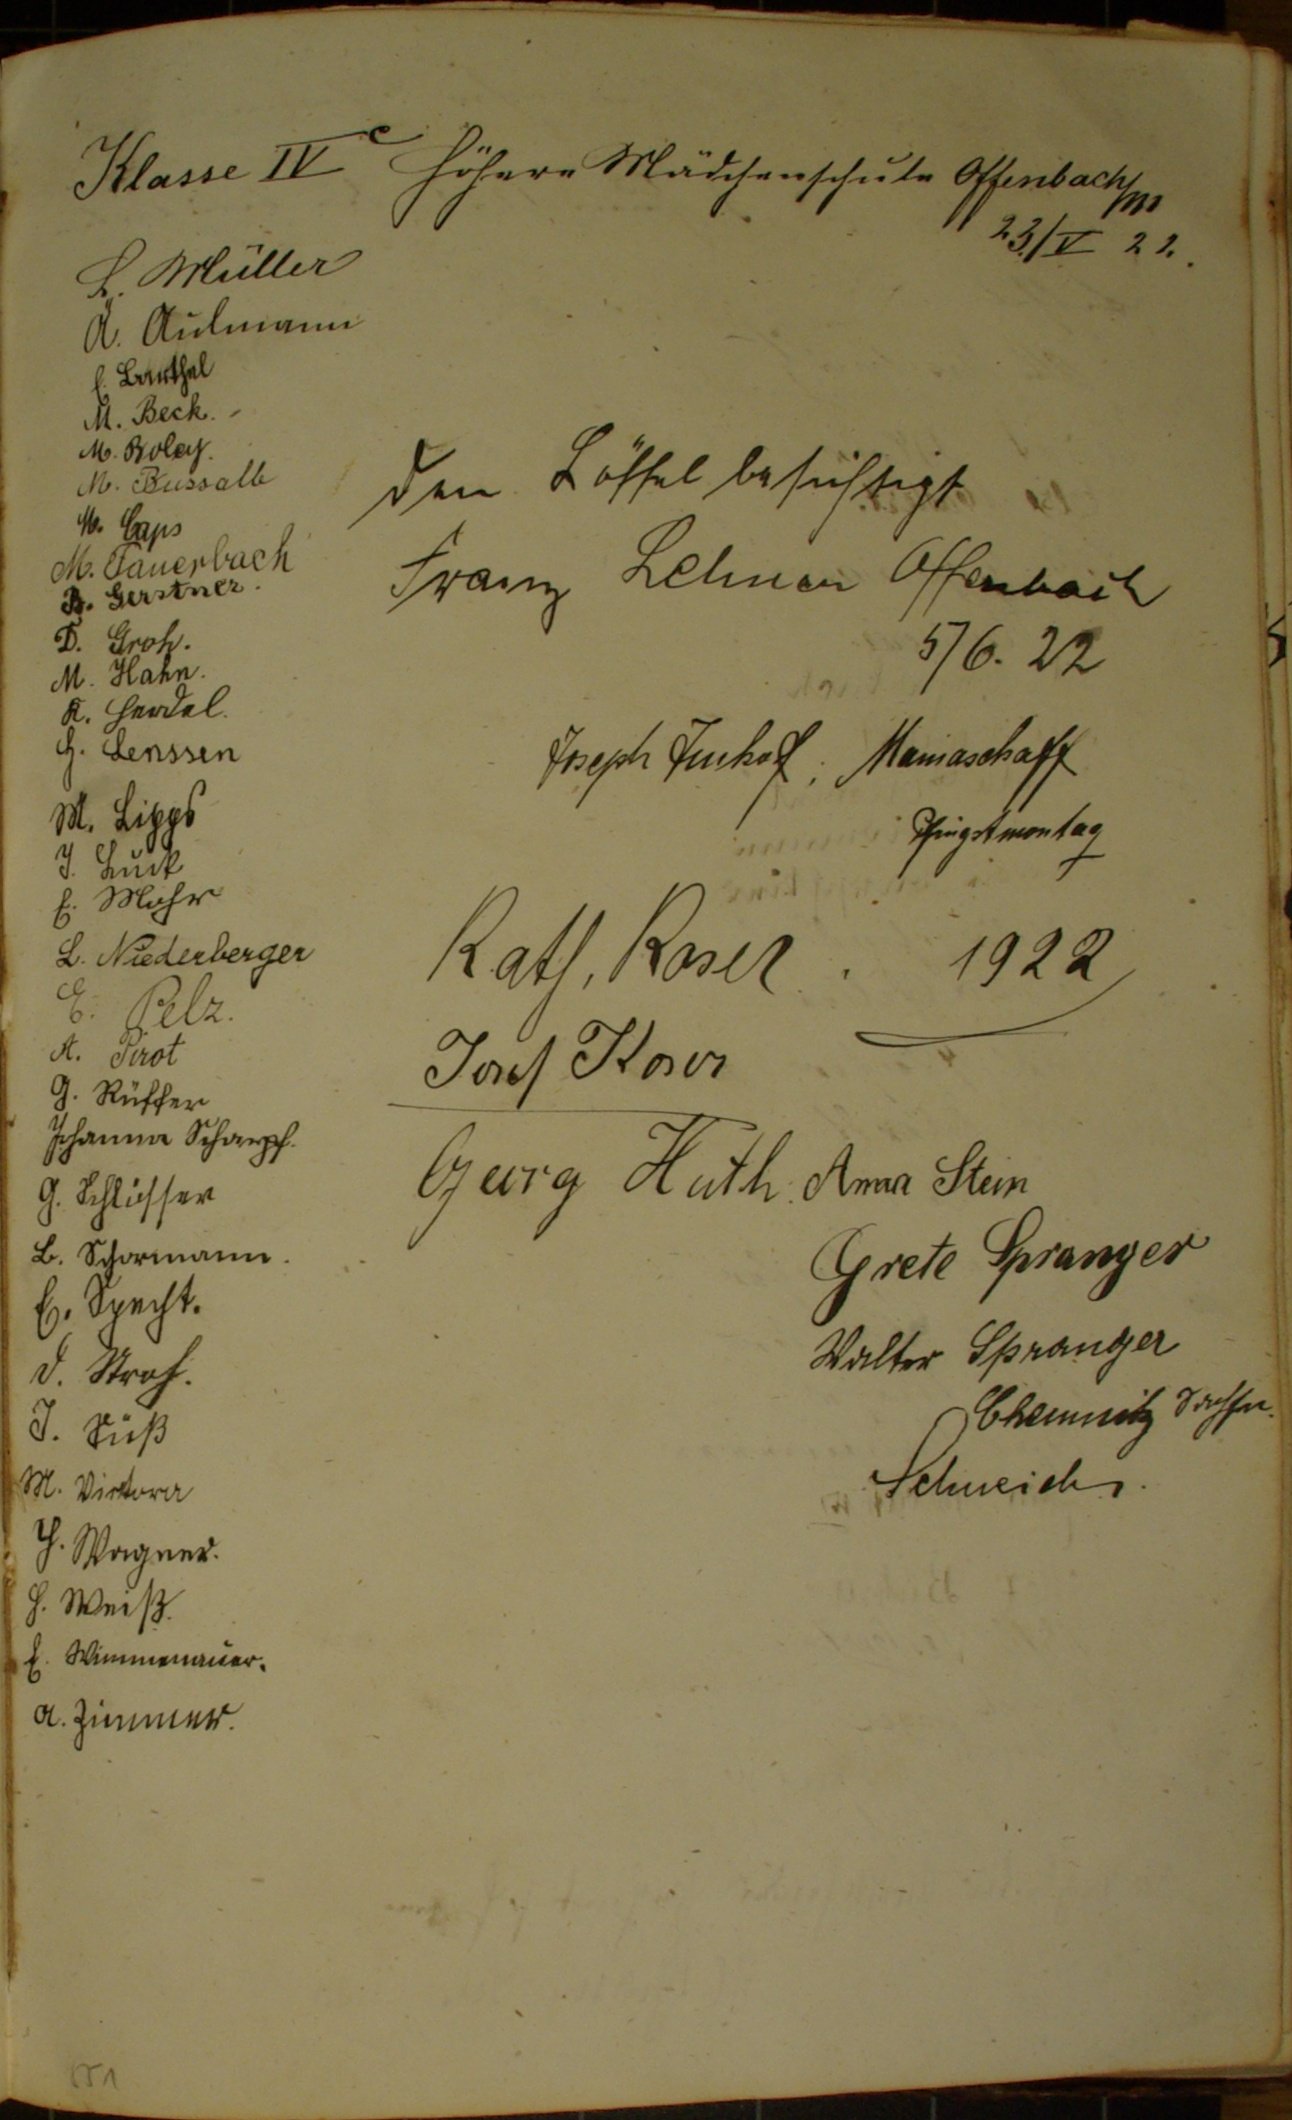 Klasse IVc Höhere Mädchenschule Offenbach/M
23/V 22.
L. Müller
A. Aulmann
E. Barthel
M. Beck.
M. Boley.
M. Bussalb
M. Caps
M. Fauerbach
B. Gerstner.
D. Groh.
M. Hahn.
K. Herdel.
H. Lenssen
M. Lipps
J. Luck
E. Mohr
L. Niederberger
E. Pelz.
A. Pirot
G. Rüffer
Johanna Scharpf.
G. Schlosser
L. Schormann.
E. Specht.
D. Stroh.
J. Süß
M. Viktora
H. Wagner.
H. Weiß.
E. Wimmenauer.
A. Zimmer.
den Löffel besichtigt
Franz Offenbach
5/6. 22
Joseph Imhof, Mainaschaff
Pfingstmontag
Kath. Koser. 1922
Josef Koser
Georg Huth. Anna Stein
Grete Spranger
Walter Spranger
Chemnitz Sachsen.